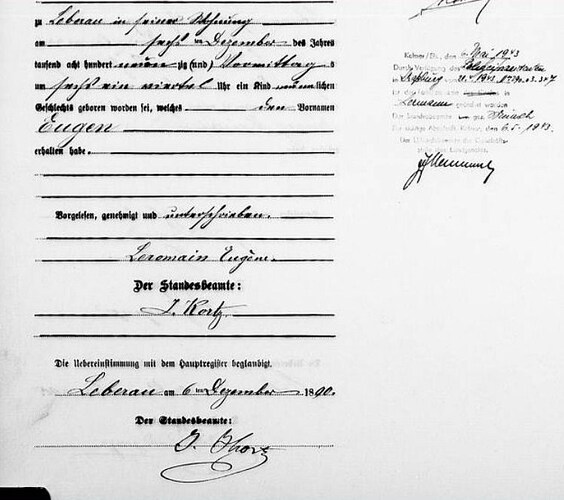 zu Leberau in seiner Wohnung
am sechsten Dezember des Jahres
tausend acht hundert neunzig (und) Vormittag s
um sechs ein viertel Uhr ein Kind männlichen
Geschlechts geboren worden sei, welches den Vornamen
Eugen
erhalten habe.
Vorgelesen, genehmigt und unterschrieben.
Leromain Eugène.
Der Standesbeamte:
J. Kortz
Die Uebereinstimmung mit dem Hauptregister beglaubigt.
Leberau am 6 ten Dezember 1890.
Der Standesbeamte:
Kolmar i/Els., den 6. Mai 1943
Durch Verfügung des Polizeipräsidenten
in
Der Standesbeamte gez.
Kolmar, den 6.5.1943.
Der Urkundsbeamte der Geschäfts-
stelle des Landgerichts.